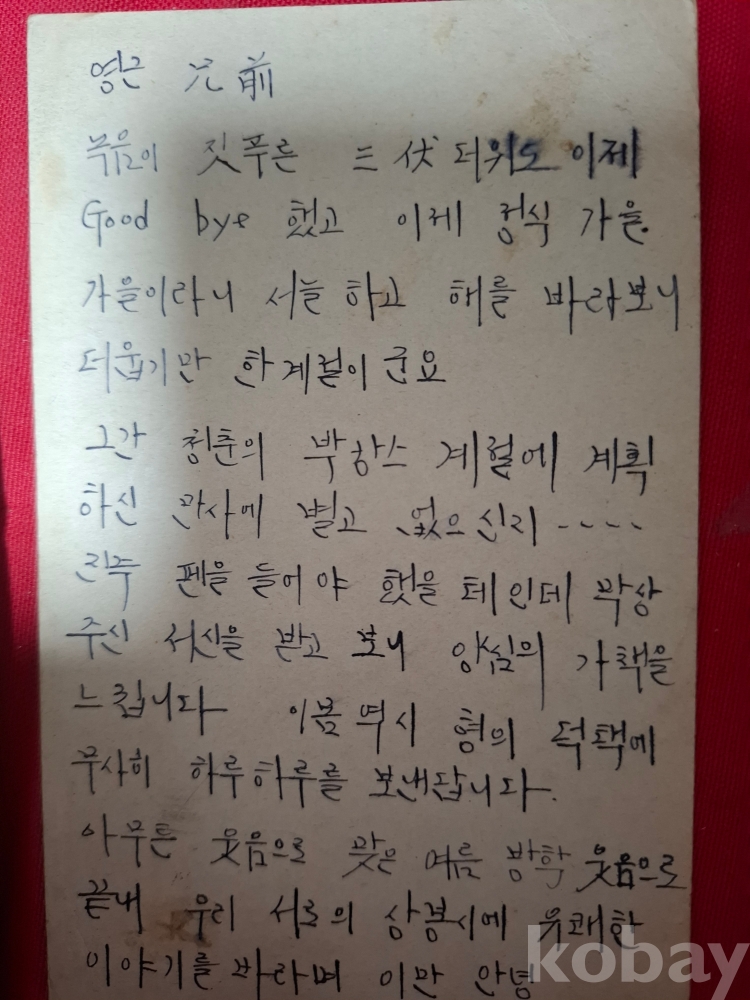 영근 兄前
녹음이 짓푸른 三伏 더위도 이제
Good bye 했고 이제 정식 가을.
가을이라니 서늘하고 해를 바라보니
더웁기만 한 계절이군요
그간 청춘의 계절에 계획
하신 만사에 별고 없으신지 ----
진즉 펜을 들어야 했을 테인데 막상
주신 서신을 받고 보니 양심의 가책을
느낍니다 이몸 역시 형의 덕택에
무사히 하루하루를 보내답니다.
아무튼 웃음으로 맞은 여름 방학 웃음으로
끝내 우리 서로의 상봉시에 유쾌한
이야기를 바라며 이만 안녕
kobay